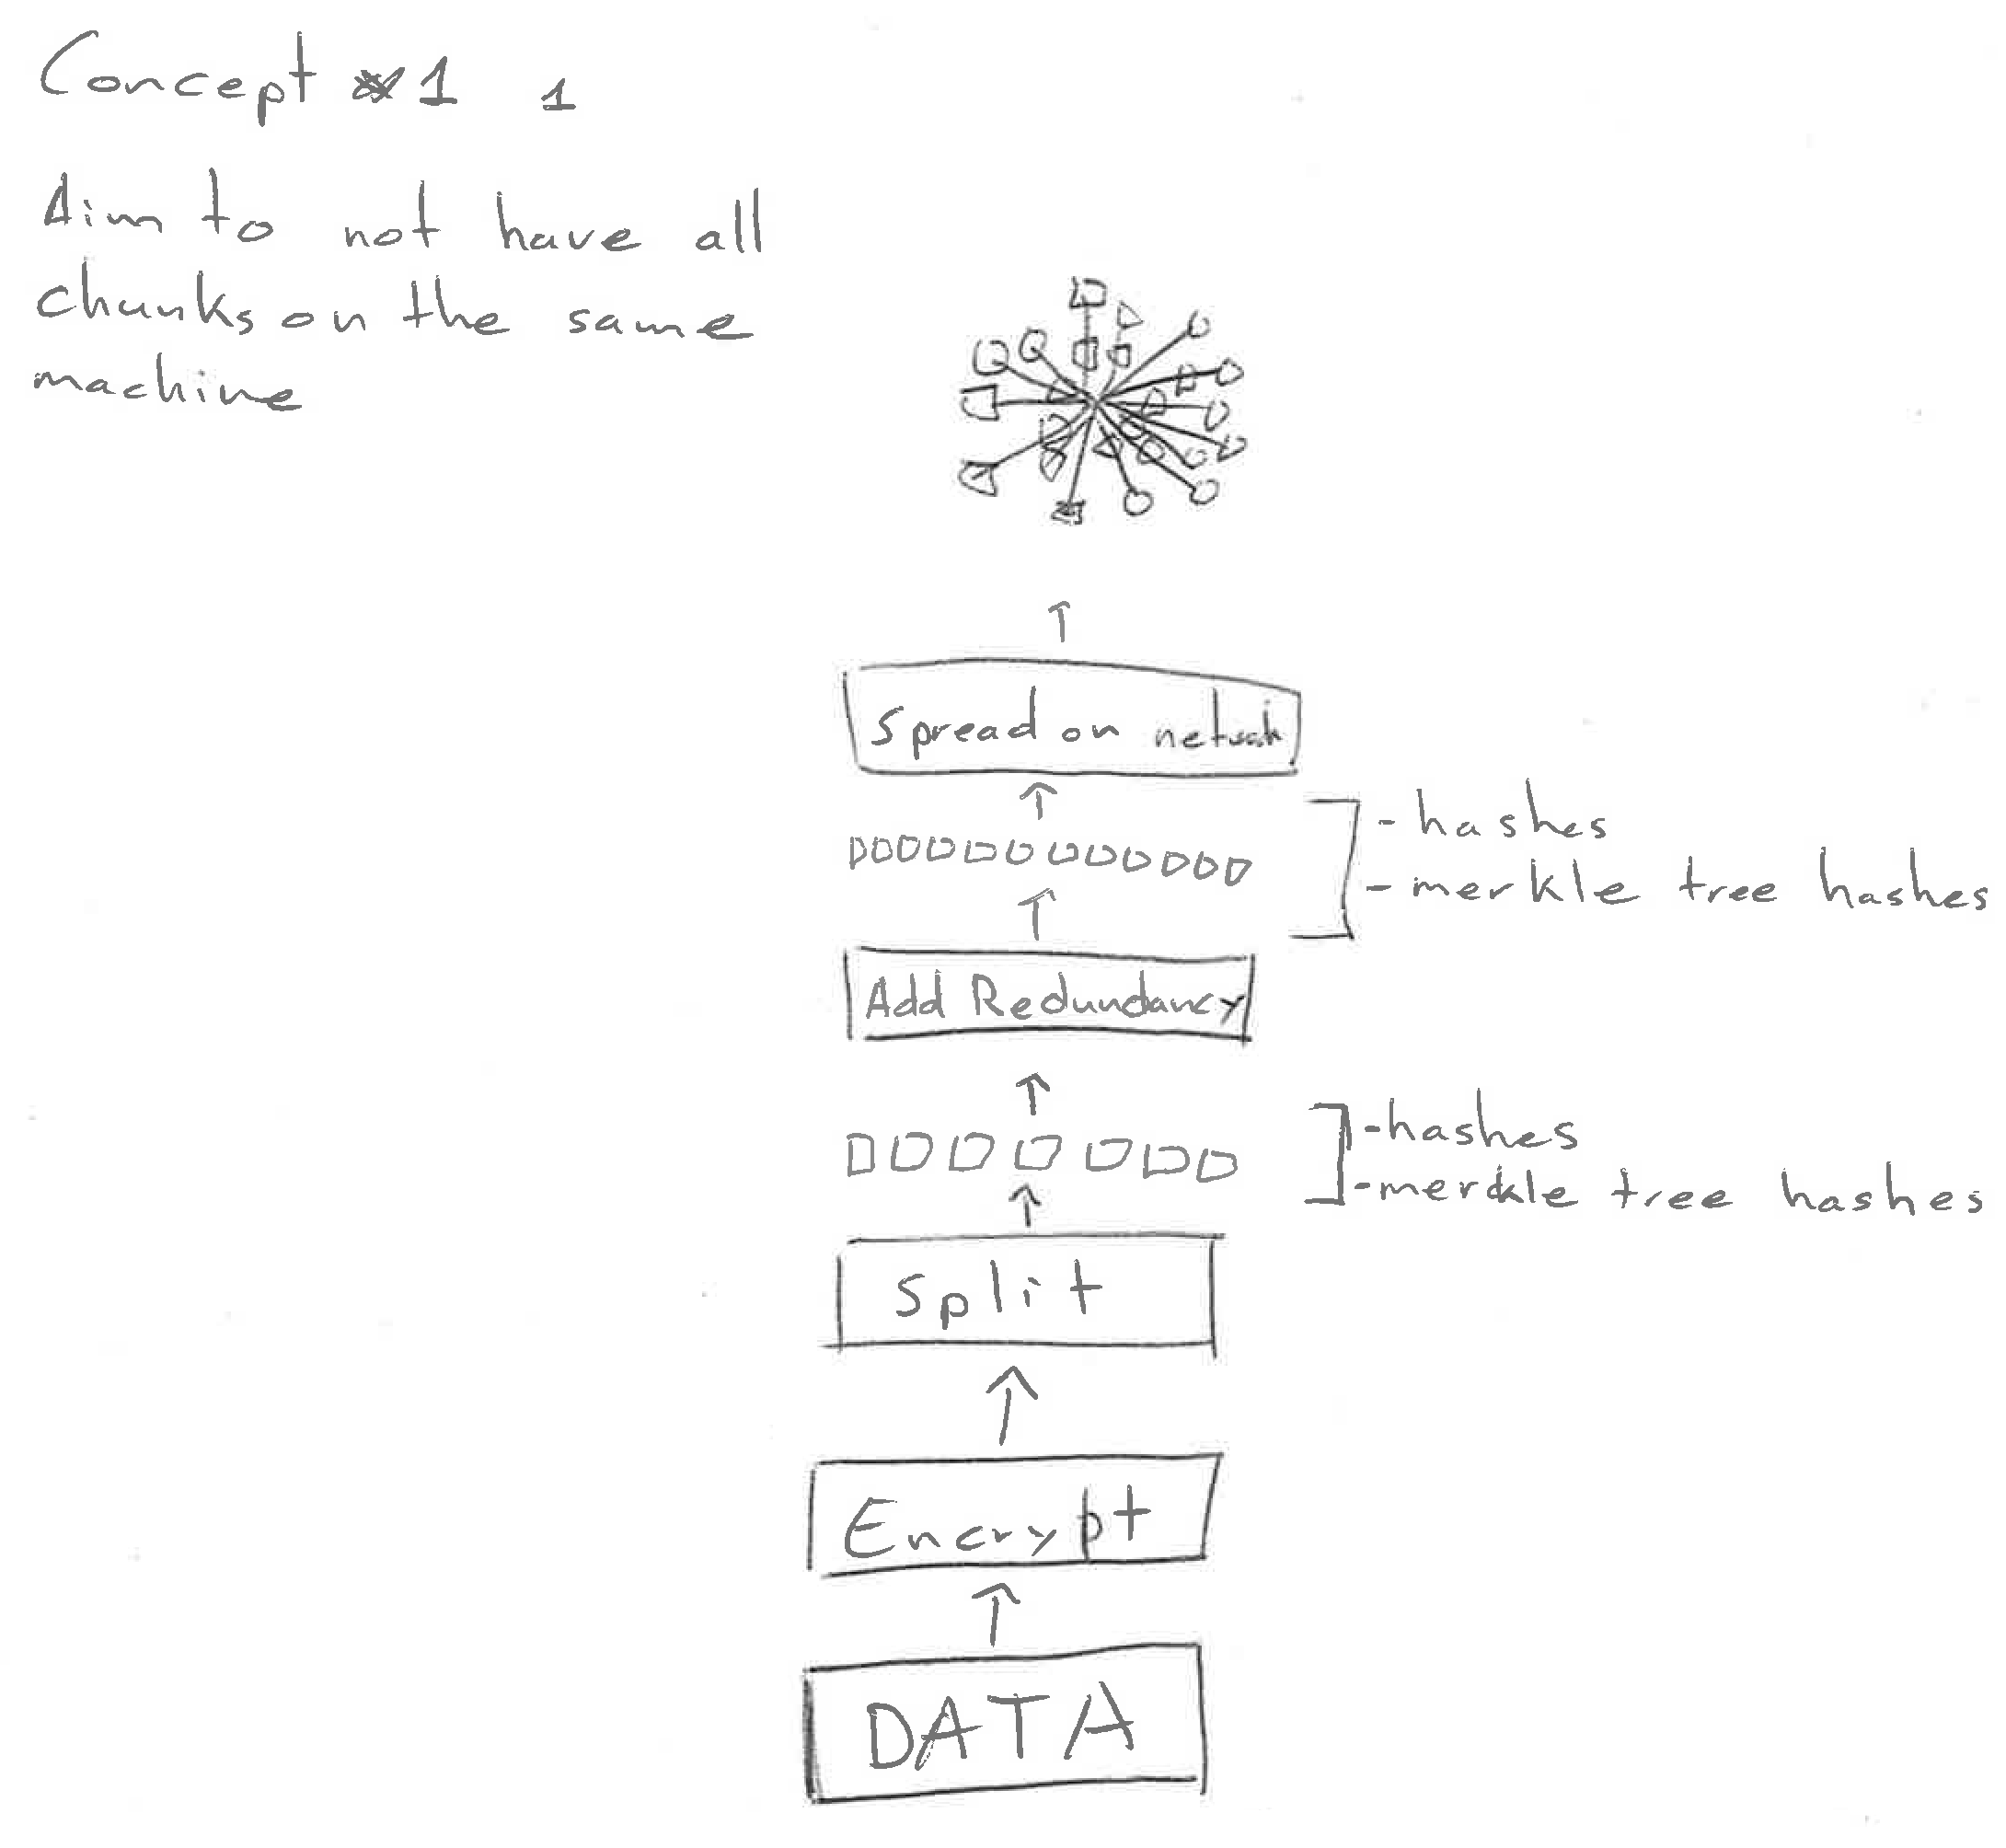 Concept 1 1
Aim to not have all
chunks on the same
machine
Spread on network
- hashes
- merkle tree hashes
Add Redundancy
- hashes
- merkle tree hashes
Split
Encrypt
DATA